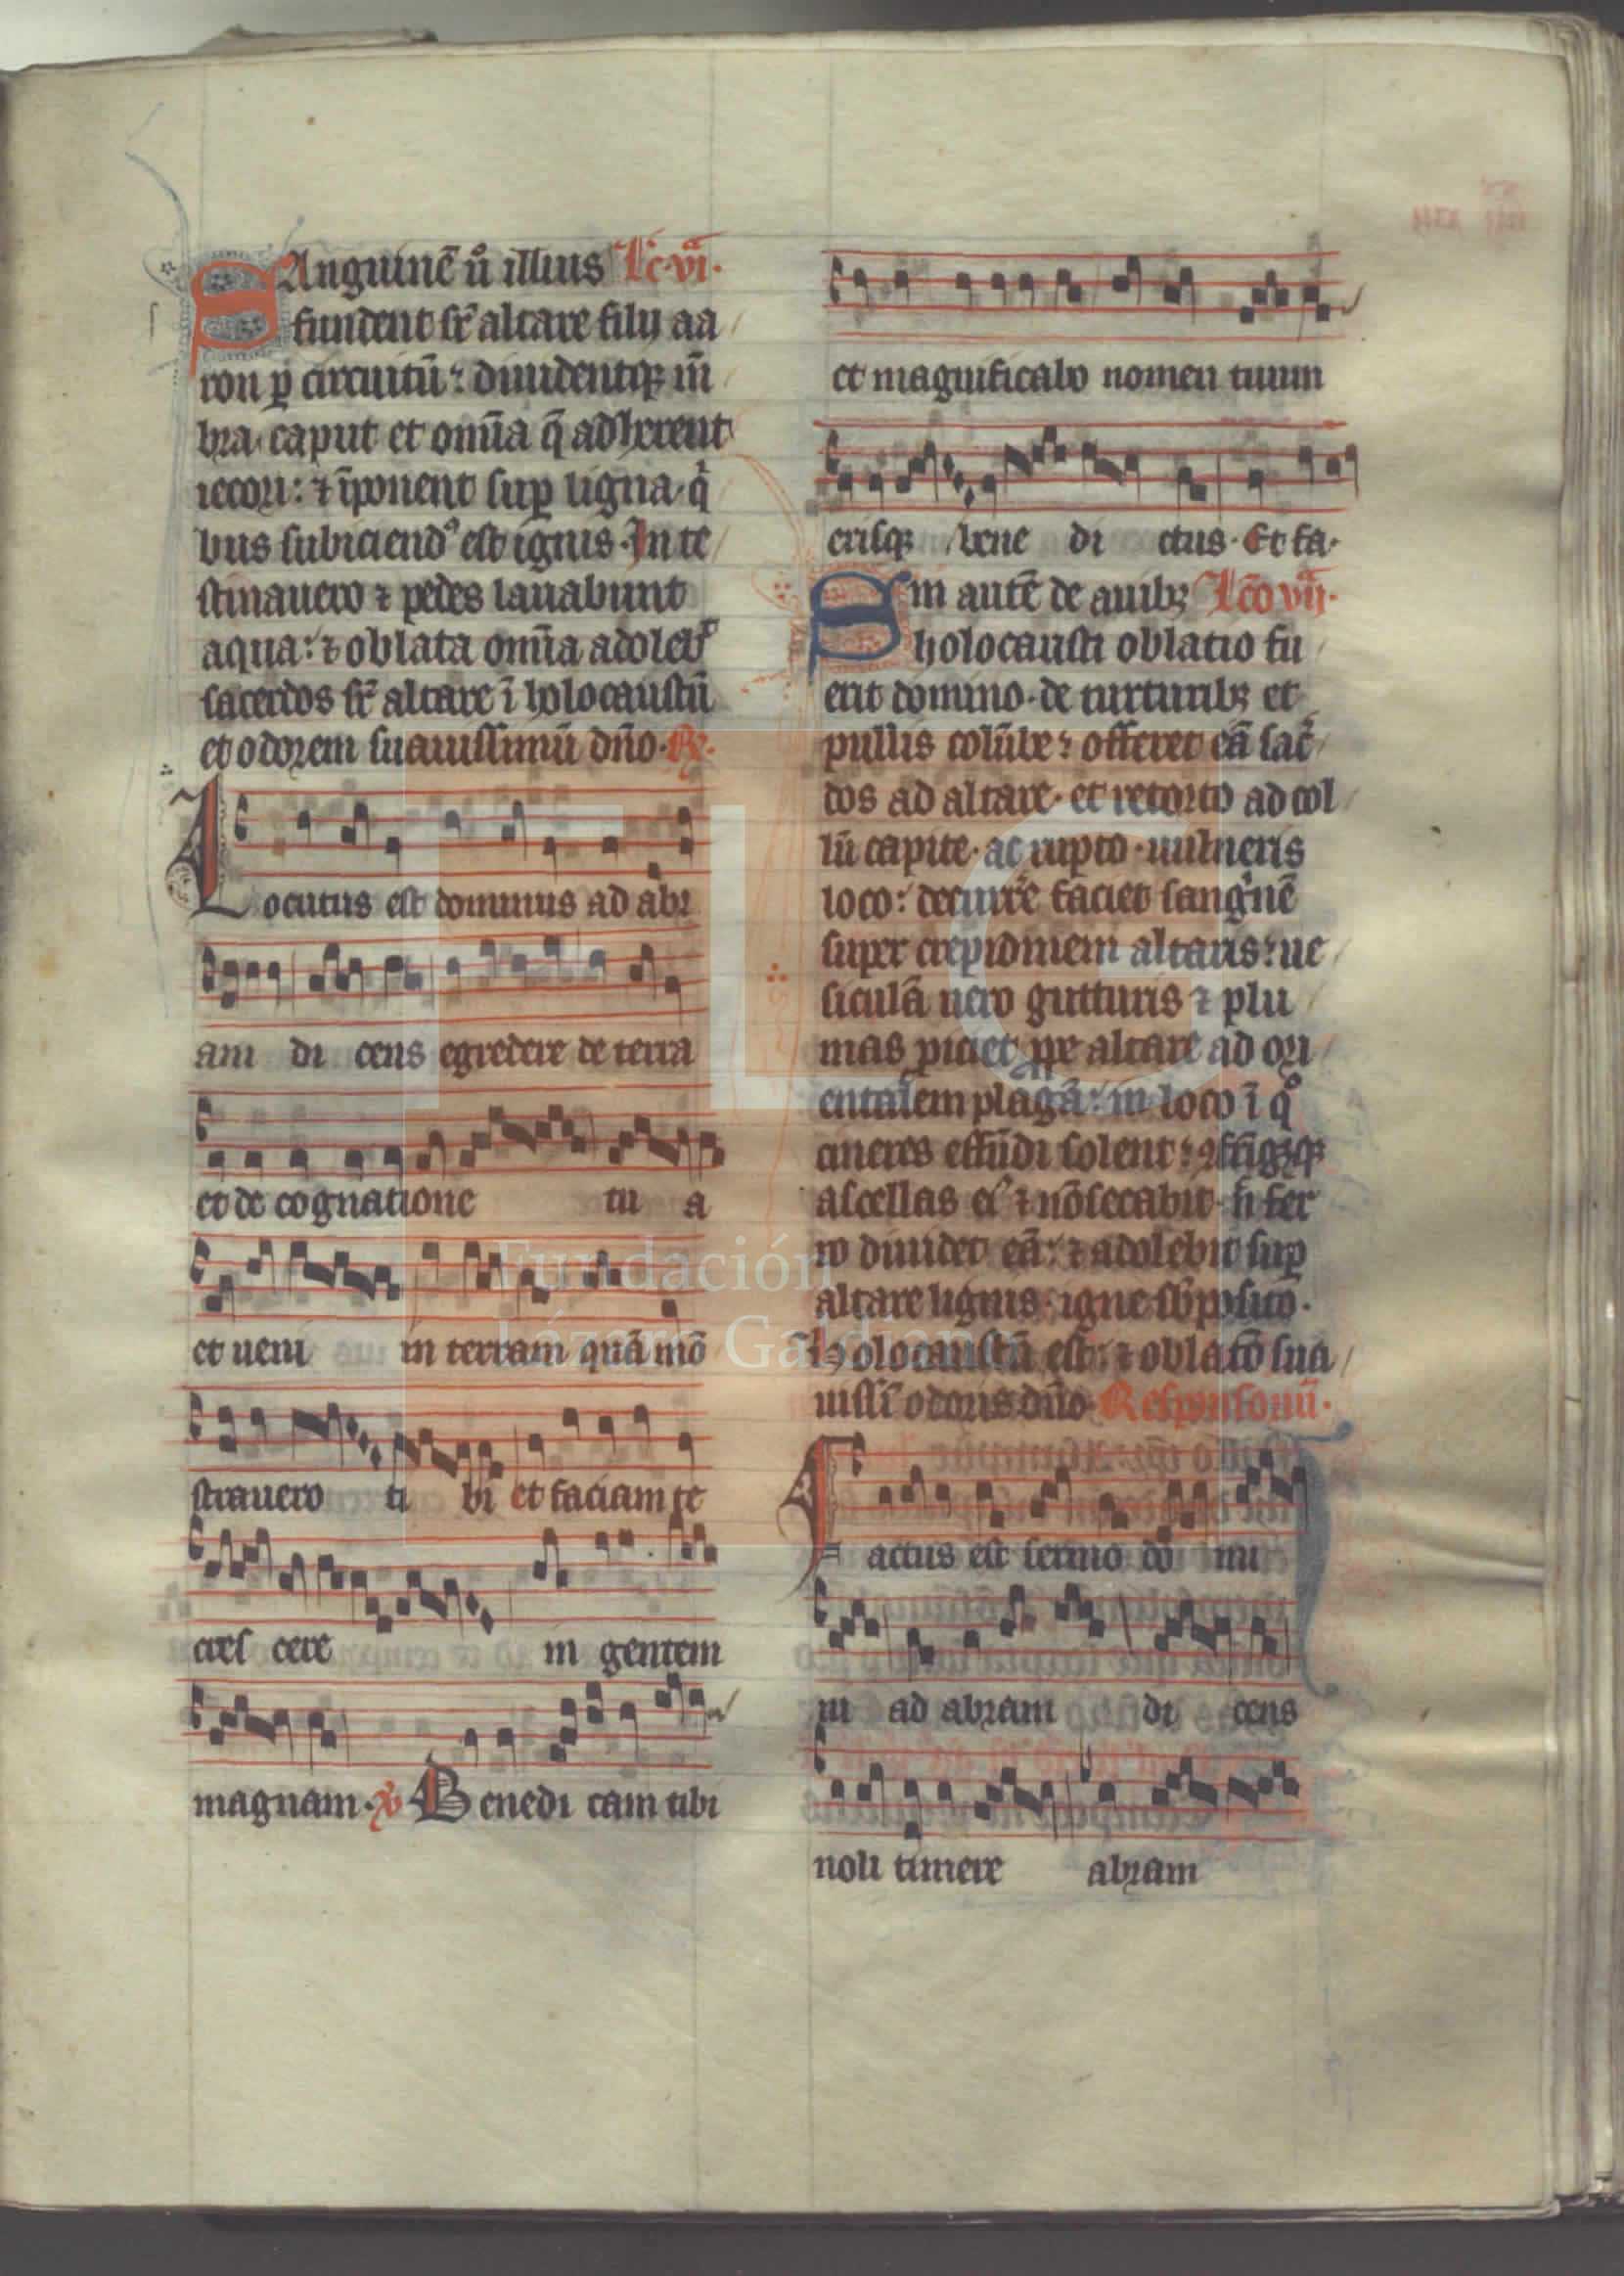 SAnguinē ū illius Lc̄ vi.
fundent sr̄ altare filij aa
ron p circuitū: diuidentq; m̄
bra. caput et om̄ia q̄ adherent
iecori: ⁊ īponent sup ligna. q̄
bus subiciendꝰ est ignis. Inte
stinauero ⁊ pedes lauabunt
aqua: ⁊ oblata om̄ia adoleb
sacerdos sr̄ altare ī holocaustū
et odorem suauissimū dn̄o. R.
Locutus est dominus ad abr
am di cens egredere de terra
et de cognatione tu a
et ueni in terram quā mō
strauero ti bi et faciam te
cres cere in gentem
magnam. v Benedi cam tibi
et magnificabo nomen tuum
erisq; bene di ctus. Et fa.
Sin autē de auibꝫ Lc̄o vij.
holocausti oblatio fu
erit domino. de turturibꝫ et
pullis colūbe: offeret eā sac̄
dos ad altare. et retorto ad col
lū capite. ac rupto uulneris
loco: decurrē faciet sangnē
super crepidinem altaris: ue
siculā uero gutturis ⁊ plu
mas piciet ppe altare ad ori
entalem plagā: in loco ī qͦ
cineres effūdi solent: ꝯfrīgꝫq;
ascellas eiꝰ ⁊ nō secabit. n̄ fer
ro diuidet eā: ⁊ adolebit sup
altare lignis. igne sb̄posito.
holocaustū est: ⁊ oblatō sua
uissī odoris dn̄o Responsoriū.
Factus est sermo do mi
ni ad abram di cens
noli timere abram
FLG
Fundación
Lázaro Galdiano